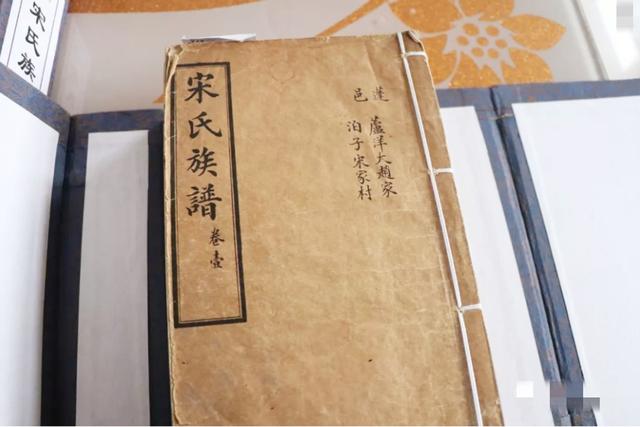 宋氏族
宋氏族譜 卷壹
蓬 蘆洋大趙家
邑 泊子宋家村